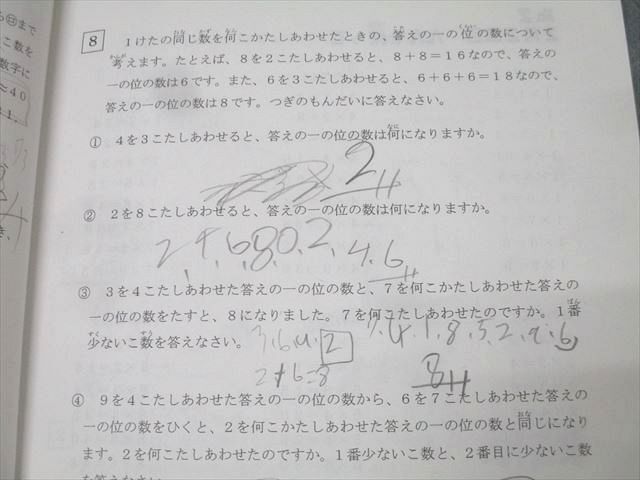 ら㊂まで
こ数を
数字に
=40
8 1けたの同じ数を何こかたしあわせたときの、答えの一の位の数について
考えます。たとえば、8を2こたしあわせると、8+8=16なので、答えの
一の位の数は6です。また、6を3こたしあわせると、6+6+6=18なので、
答えの一の位の数は8です。つぎのもんだいに答えなさい。
① 4を3こたしあわせると、答えの一の位の数は何になりますか。
2
② 2を8こたしあわせると、答えの一の位の数は何になりますか。
2,4,6,8,0,2,4,6
③ 3を4こたしあわせた答えの一の位の数と、7を何こかたしあわせた答えの
一の位の数をたすと、8になりました。7を何こたしあわせたのですか。1番
少ないこ数を答えなさい。
2
7,4,1,8,5,2,9,6
2+6=8
8
④ 9を4こたしあわせた答えの一の位の数から、6を7こたしあわせた答えの
一の位の数をひくと、2を何こかたしあわせた答えの一の位の数と同じになり
ます。2を何こたしあわせたのですか。1番少ないこ数と、2番目に少ないこ数
を答えなさい。